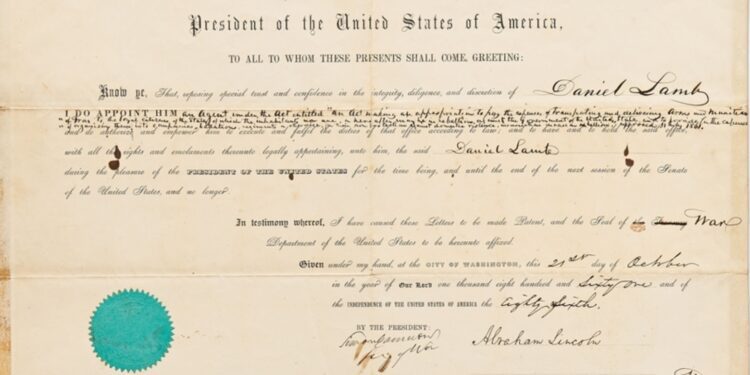 President of the United States of America,
TO ALL TO WHOM THESE PRESENTS SHALL COME, GREETING:
Know ye, That, reposing special trust and confidence in the integrity, diligence, and discretion of Daniel Lamb
I DO APPOINT HIM an Agent under the Act entitled "an Act making an appropriation to pay the expenses of transporting and delivering Arms and Munitions
of War to the loyal citizens of the States of which the inhabitants now are, or hereafter may be in rebellion against the government of the United States, and to provide for the expenses
of organizing them into companies, battalions, regiments or otherwise, for their own protection against domestic violence, insurrection, invasion or rebellion," approved July 31, 1861.
and do authorize and empower him to execute and fulfil the duties of that office according to law; and to have and to hold the said office,
with all the rights and emoluments thereunto legally appertaining, unto him, the said Daniel Lamb
during the pleasure of the PRESIDENT OF THE UNITED STATES for the time being, and until the end of the next session of the Senate
of the United States, and no longer.
In testimony whereof, I have caused these Letters to be made Patent, and the Seal of the Treasury War
Department of the United States to be hereunto affixed.
Given under my hand, at the CITY OF WASHINGTON, this 21st day of October
in the year of Our Lord one thousand eight hundred and Sixty one and of
the INDEPENDENCE OF THE UNITED STATES OF AMERICA the Eighty Sixth.
BY THE PRESIDENT:
Simon Cameron Abraham Lincoln
Secy of War